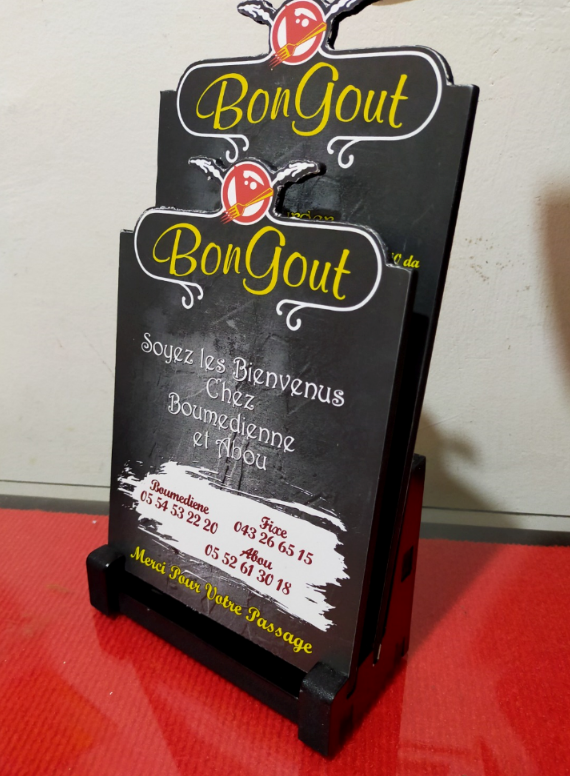 BonGout
BonGout
Soyez les Bienvenus
Chez
Boumedienne
et Abou
Boumediene
05 54 53 22 20
Fixe
043 26 65 15
Abou
05 52 61 30 18
Merci Pour Votre Passage
da